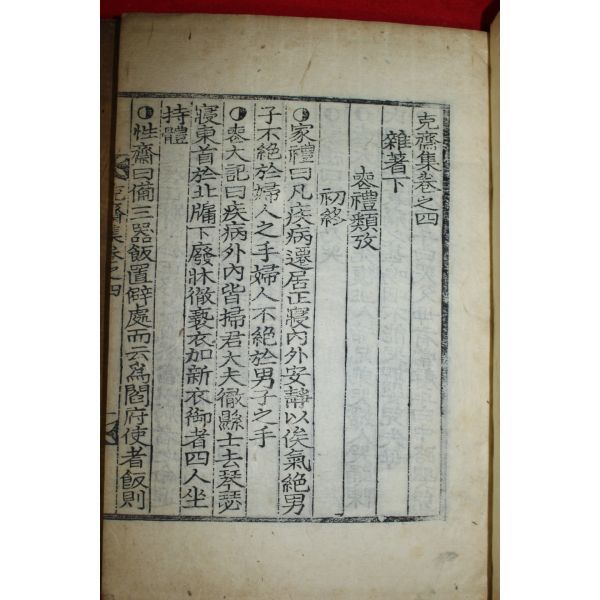 克齋集卷之四
雜著下
喪禮類攷
初終
◐家禮曰凡疾病遷居正寢內外安靜以俟氣絶男
子不絶於婦人之手婦人不絶於男子之手
◐喪大記曰疾病外內皆掃君大夫徹縣士去琴瑟
寢東首於北牖下廢牀徹褻衣加新衣御者四人坐
持體
◐性齋曰備三器飯置僻處而云爲閻府使者飯則
克齋集卷之四